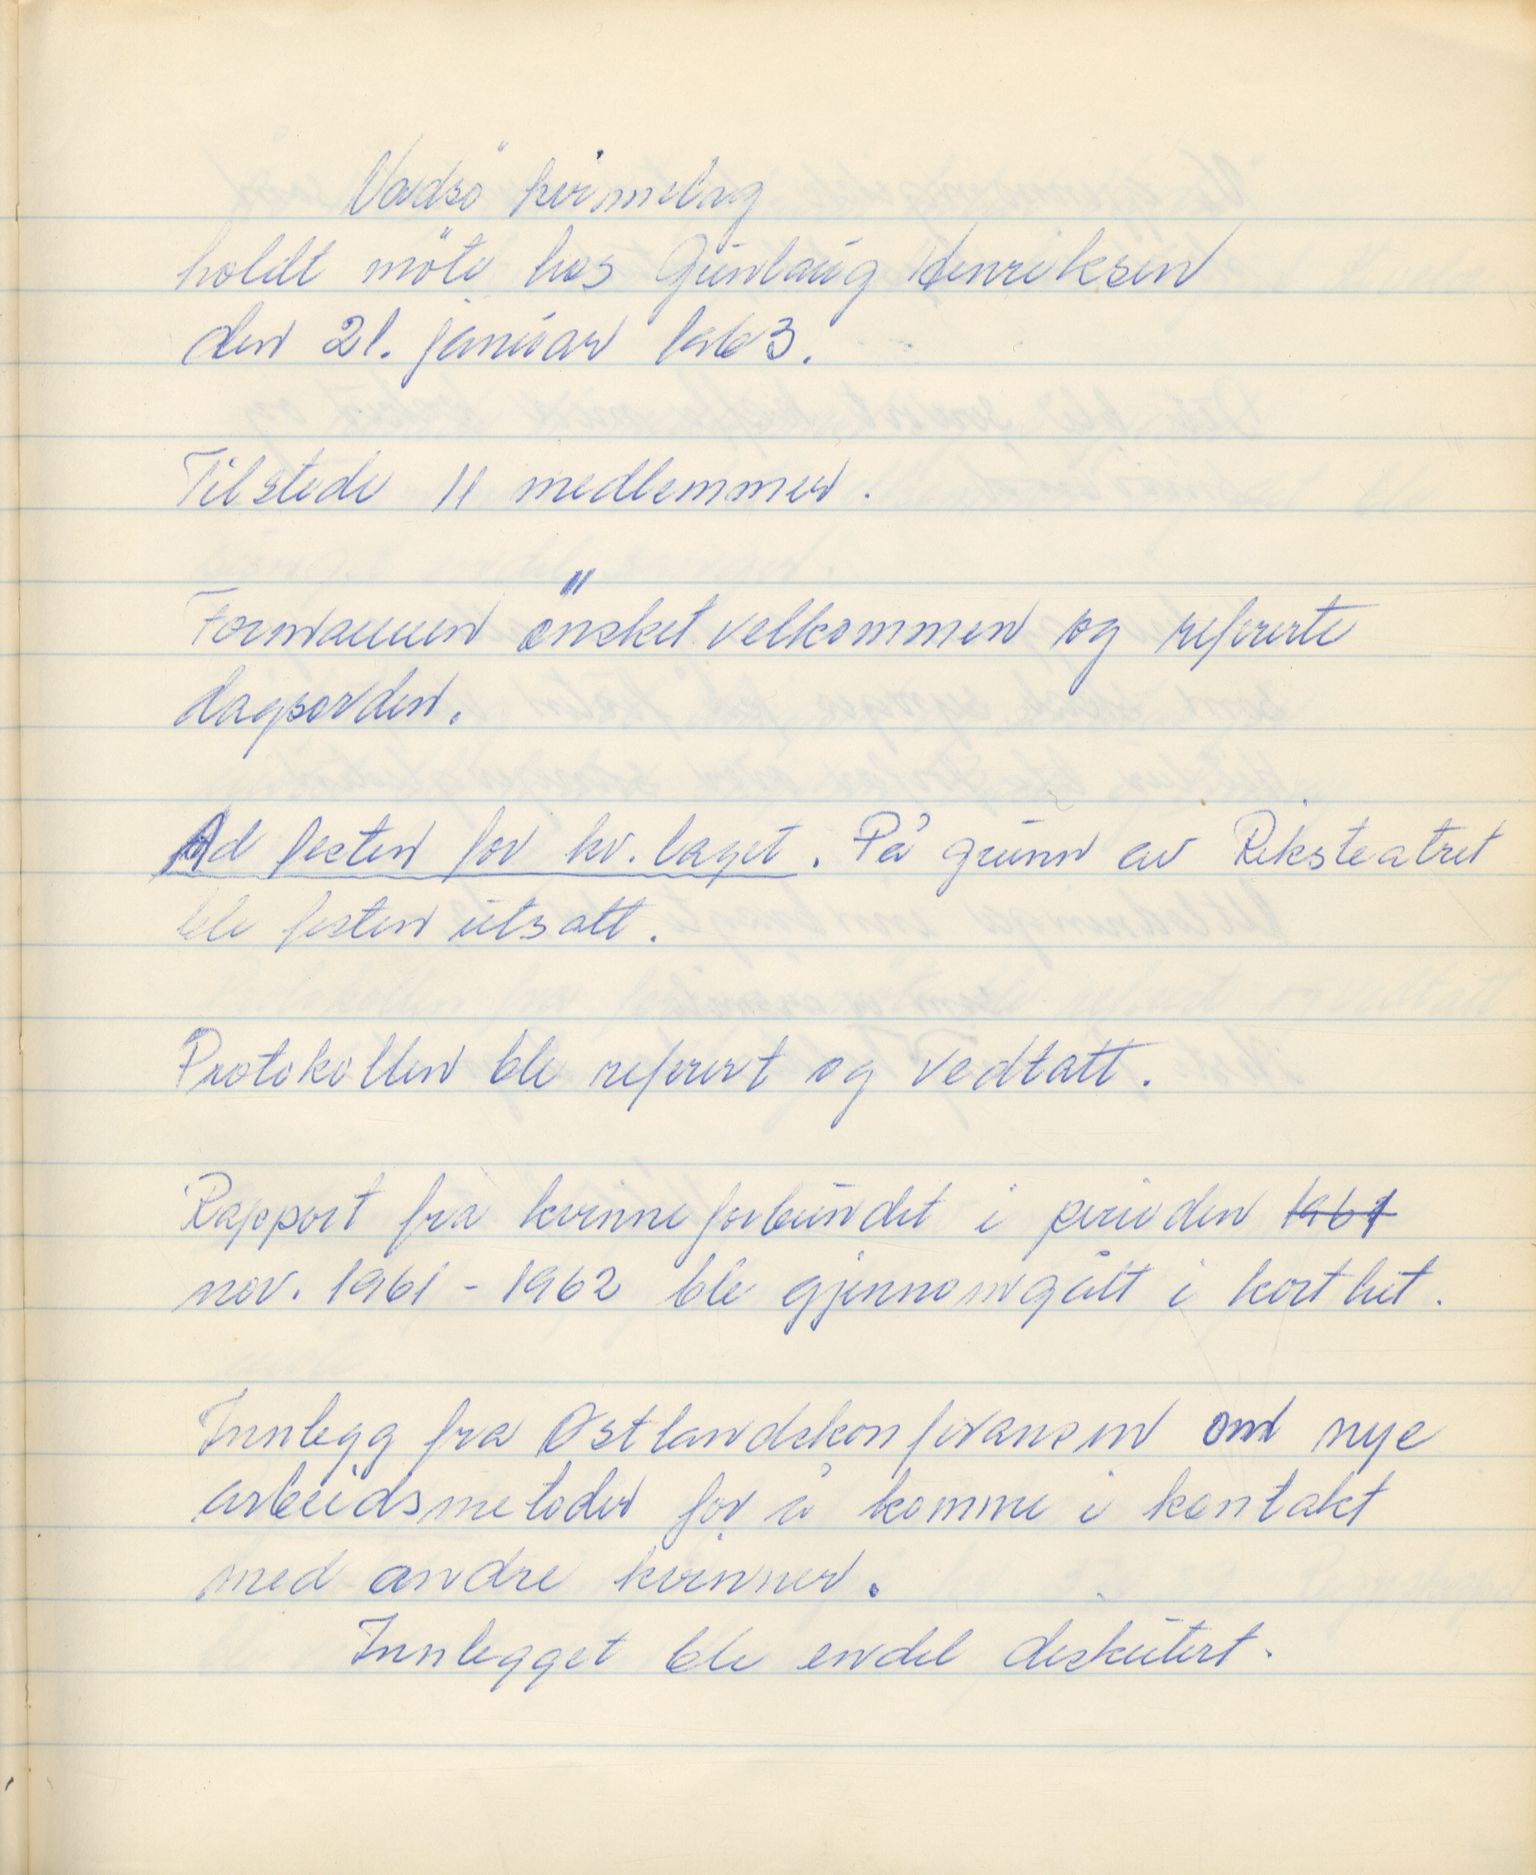 Vadsö kvinnelag
holdt möte hos Gunlaug Henriksen
den 21. januar 1963.
Tilstede 11 medlemmer.
Formannen önsket velkommen og refererte
dagsorden.
Ad festen for kv. laget. På grunn av Riksteatret
ble festen utsatt.
Protokollen ble referert og vedtatt.
Rapport fra kvinneforbundet i perioden 1961
nov. 1961 - 1962 ble gjennomgått i korthet.
Innlegg fra Østlandskonferansen om nye
arbeidsmetoder for å komme i kontakt
med andre kvinner.
Innlegget ble endel diskutert.